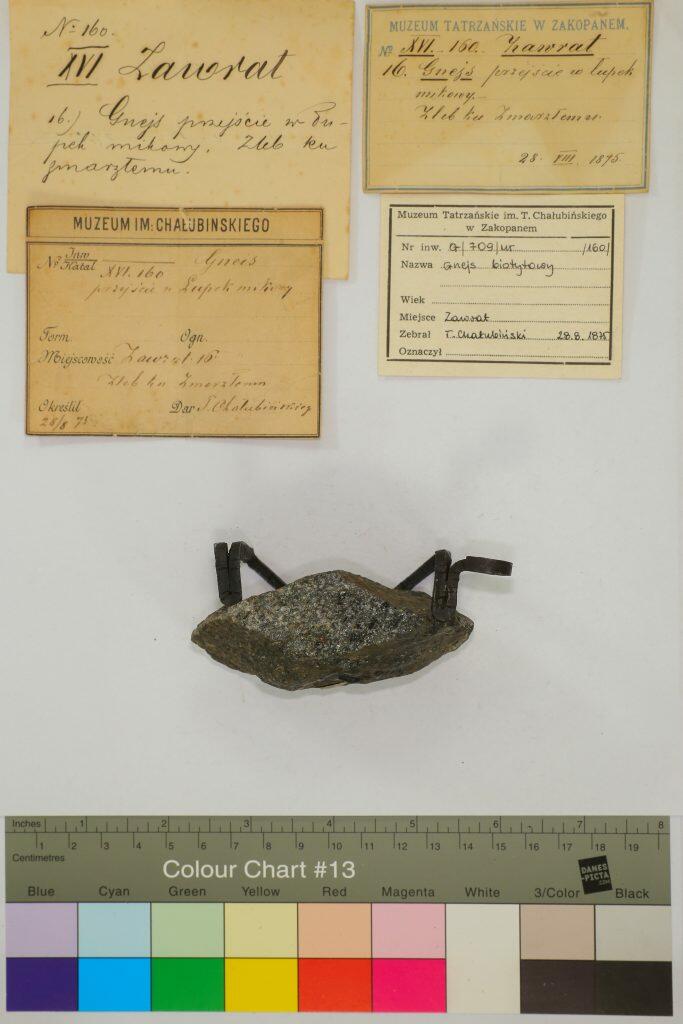 No 160.
XVI Zawrat
16.) Gnejs przejście w Łu-
pek mikowy. Żleb ku
zmarzłemu.
MUZEUM TATRZAŃSKIE W ZAKOPANEM.
No XVI. 160. Zawrat
16. Gnejs przejście w łupek
mikowy.
Żleb ku Zmarzłemu.
28. VIII. 1875
MUZEUM IM. CHAŁUBIŃSKIEGO
No Inw Katal XVI. 160 Gneis
przejście w Łupek mikowy
Form. Ogn.
Miejscowość Zawrat 16
Żleb ku Zmarzłemu
Określił Dar T. Chałubińskiego
28/8 75
Muzeum Tatrzańskie im. T. Chałubińskiego
w Zakopanem
Nr inw. G/709/ur /160/
Nazwa Gnejs biotytowy
Wiek
Miejsce Zawrat
Zebrał T. Chałubiński 28.8.1875
Oznaczył
Inches 1 2 3 4 5 6 7 8
1 2 3 4 5 6 7 8 9 10 11 12 13 14 15 16 17 18 19
Centimetres
Colour Chart #13
DANES
-PICTA
.COM
Blue Cyan Green Yellow Red Magenta White 3/Color Black